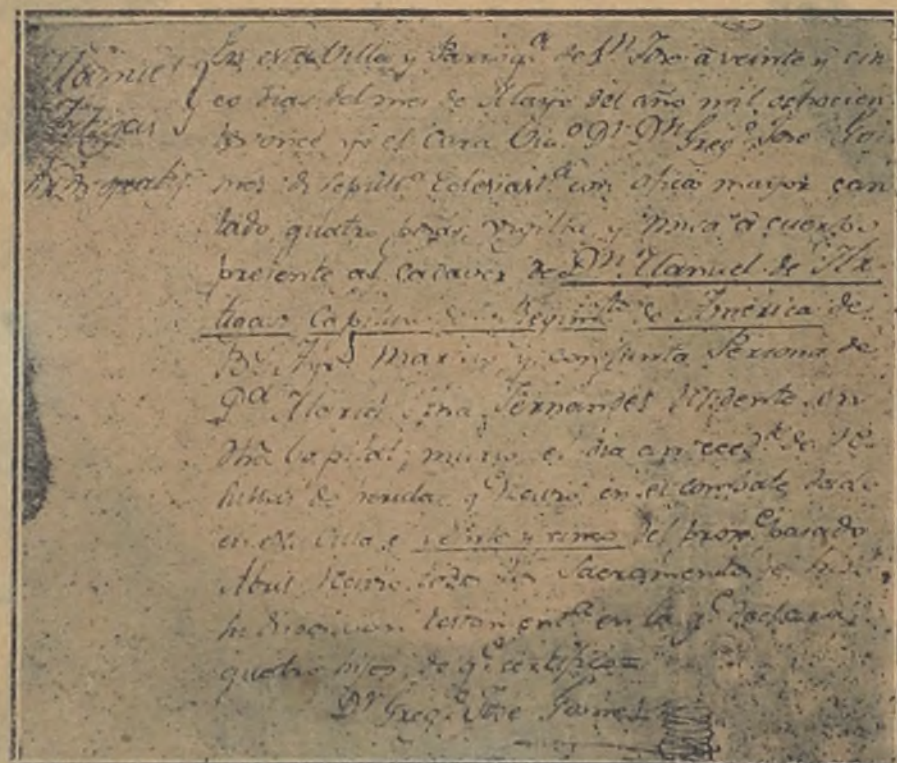 Manuel
Artigas
En esta Villa y Parroqª. de Sⁿ. Jose à veinte y cin
co dias del mes de Mayo del año mil ochocien
tos once yo el Cura Vicº. Dʳ. Dⁿ. Gregº. Jose Gó
mes di sepultª. Eclesiastª. con oficio mayor can
tado, quatro posas, vigilia y misa à cuerpo
presente al cadaver de Dⁿ. Manuel de Ar
tigas Capitan de Regimᵗᵒ. de America de
Bˢ. Ayˢ. marido y conjunta Persona de
Dª. Maria Fernandes residente en
dha Capital; murió el dia de
heridas qᵉ. en el combate
en esta Villa el veinte y cinco del proxº. pasado
Abril los Sacramentos
en la qᵉ. declara
quatro hijos de qᵉ. certifico=
Dʳ. Gregº. Jose Gomes